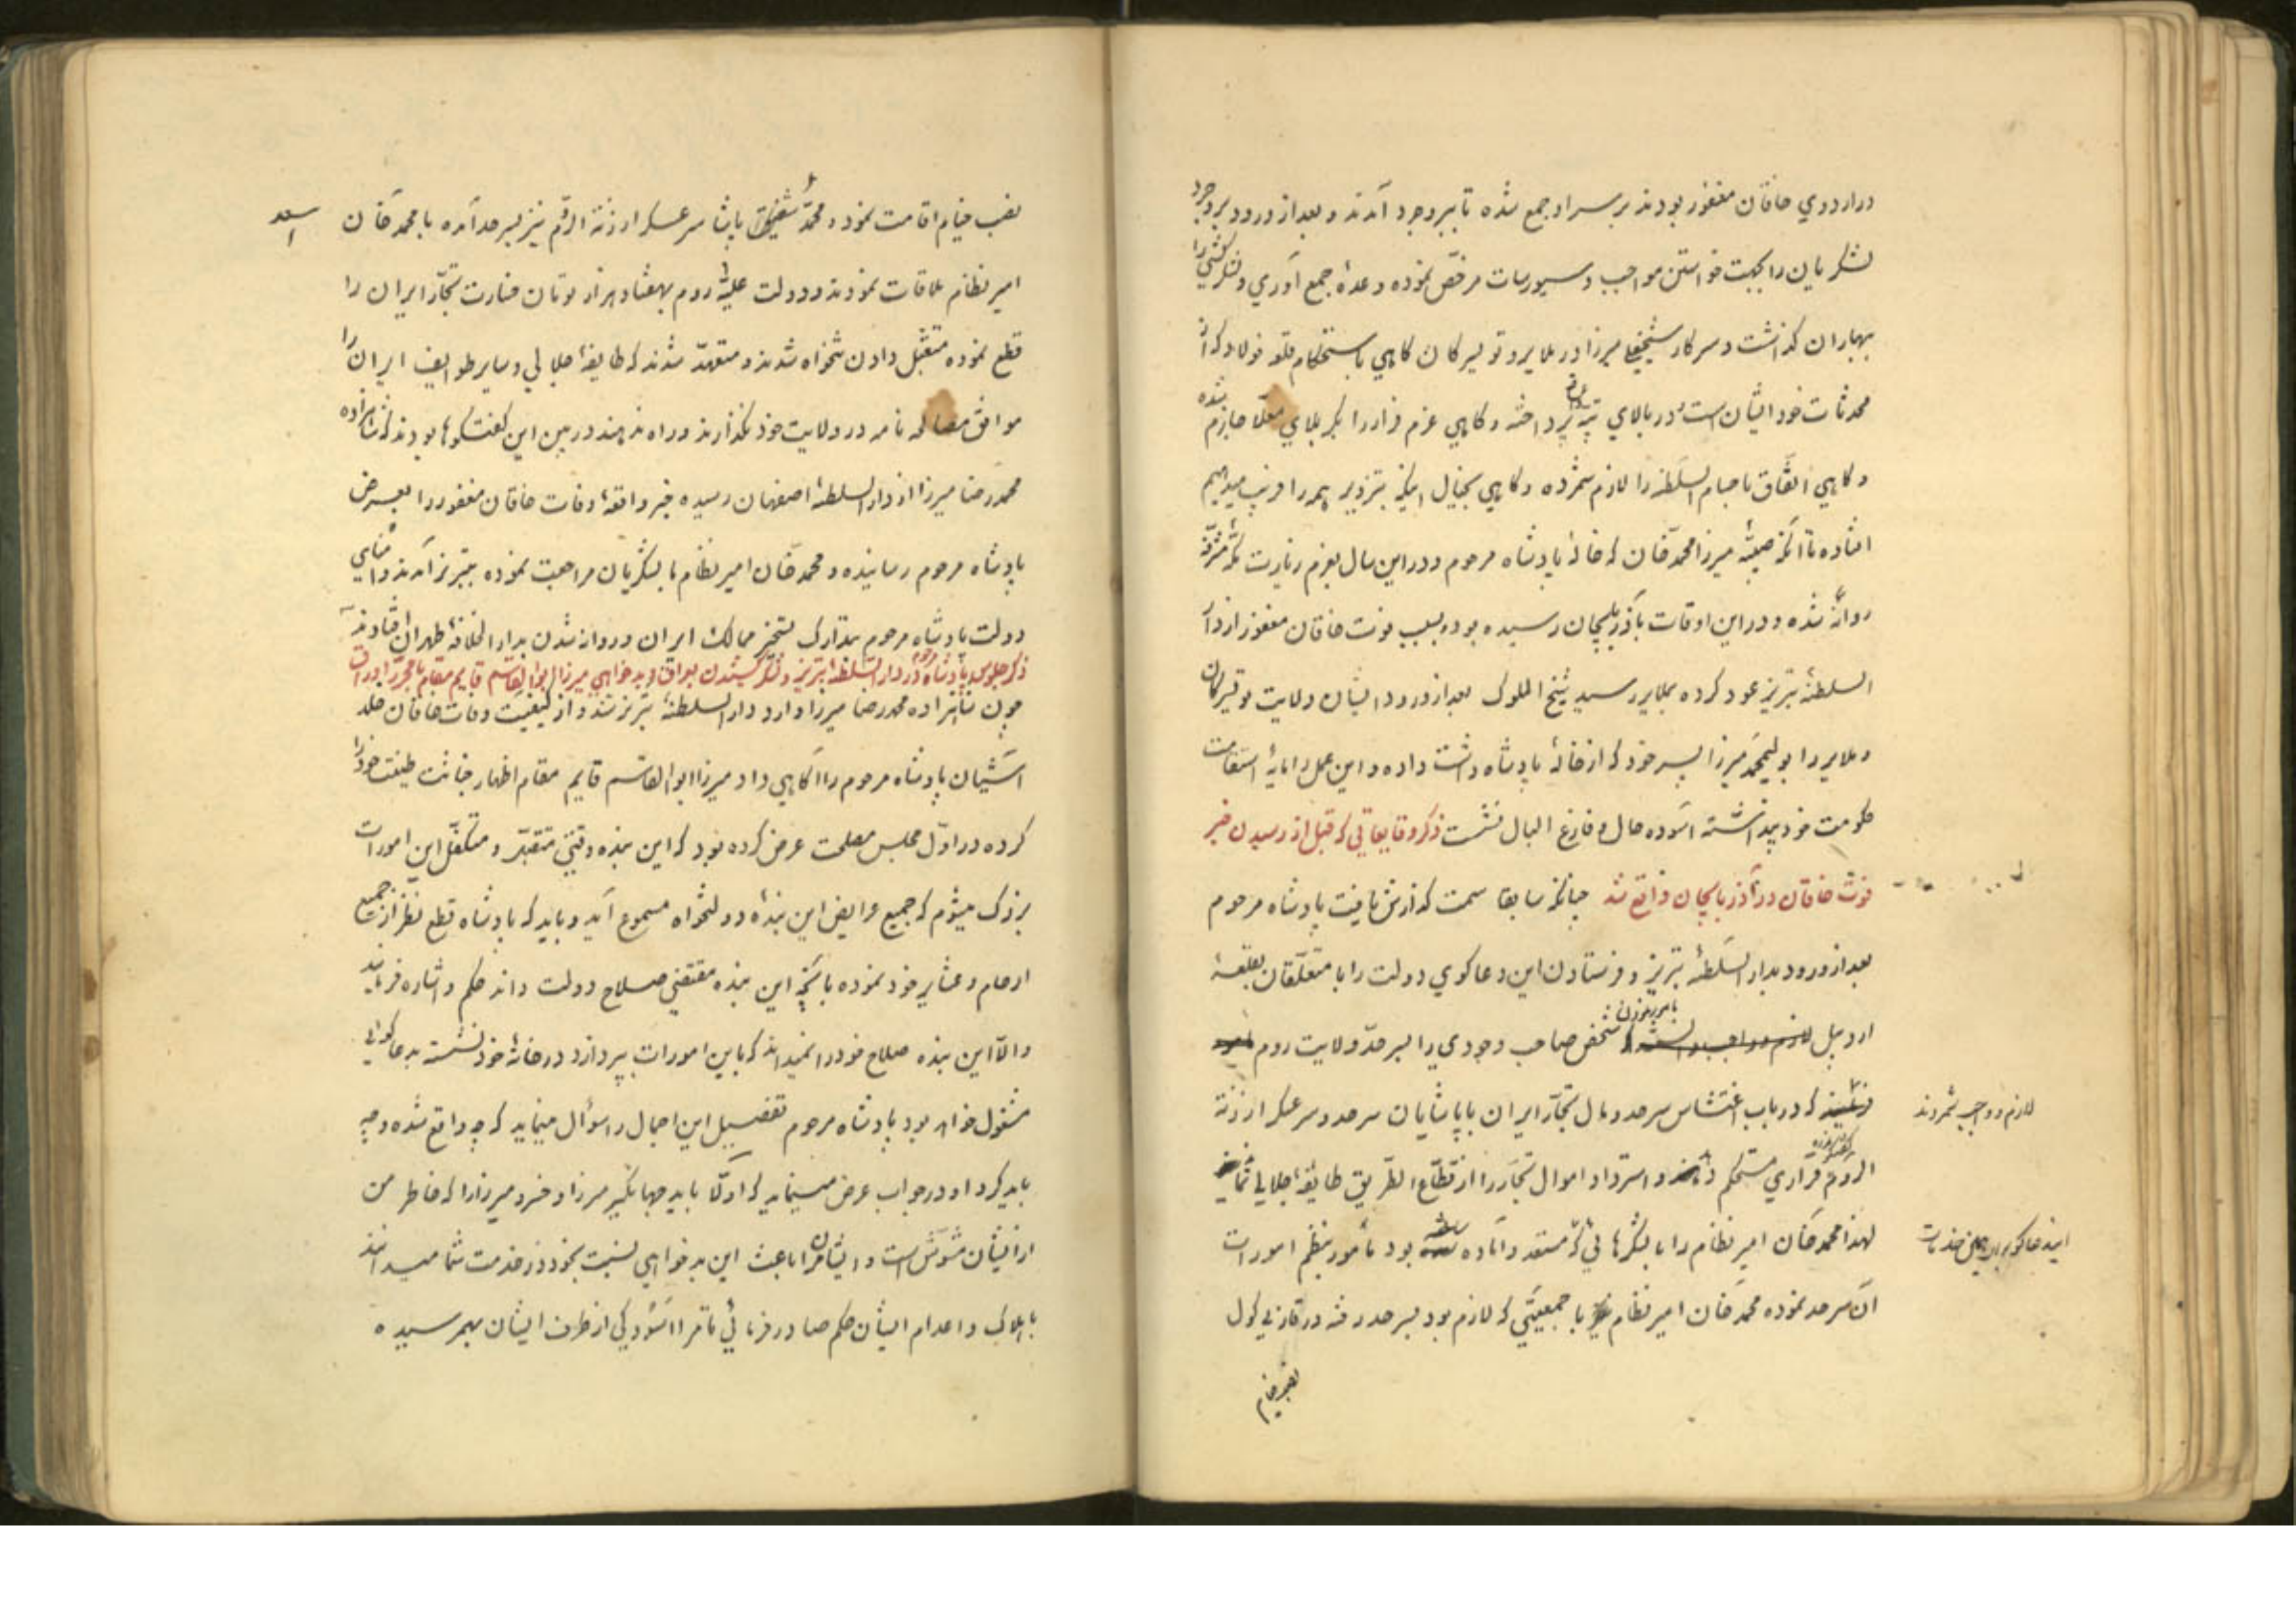 در اردوي خاقان مغفور بودند بر سر او جمع شده تا ببروجرد آمدند و بعد از ورود ببروجرد
لشكريان را بجهت خواستن مواجب و سيورسات مرخّص نموده وعدهٔ جمع آوري و لشكركشي را
ببهاران گذاشت و سركار شيخعلي ميرزا در ملاير و تويسركان كاهي باستحكام قلعه فولاد كه از
محدثات خود ايشان است و در بالاي تپه پرداخته و كاهي عزم فرار را بكربلاي معلّا جازم شده
و كاهي اتّفاق با حسام السّلطنه را لازم شمرده و كاهي بخيال اينكه بتزوير همه را فريب ميدهيم
افتاده تا آنكه صبيّهٔ ميرزا محمّد خان كه خالهٔ پادشاه مرحوم و در اين سال بعزم زيارت مكّهٔ مشرّفه
روانه شده و در اين اوقات باذربايجان رسيده بود و بسبب فوت خاقان مغفور از دار
السلطنهٔ تبريز عود كرده بملاير رسيد شيخ الملوك بعد از ورود ايشان ولايت تويسركان
و ملاير را بوليمحمّد ميرزا پسر خود كه از خالهٔ پادشاه داشت داده و اين عمل را مايهٔ استقامت
حكومت خود پنداشته آسوده حال و فارغ البال نشست ذكر وقايعاتي كه قبل از رسيدن خبر
فوت خاقان در آذربايجان واقع شد چنانكه سابقا سمت كذارش يافت پادشاه مرحوم
بعد از ورود بدار السّلطنهٔ تبريز و فرستادن اين دعاكوي دولت را با متعلّقان بقلعهٔ
اردبيل شخص صاحب وجودي را بسر حدّ ولايت روم
لازم و واجب شمردند
كه در باب اغتشاش سرحد و مال تجّار ايران با پاشايان سرحد و سرعسكر ارزنة
الرّوم قراري مستحكم و استرداد اموال تجّار را از قطّاع الطّريق طايفهٔ جلالي نمايد
لهذا محمّد خان امير نظام را با لشكرهائي كه مستعد و آماده بود مأمور بنظم امورات
آن سرحد نموده محمّد خان امير نظام با جمعيّتي كه لازم بود بسرحد رفته در قازلي كول
نصب خيام
نصب خيام اقامت نمود و محمّد پاشا سرعسكر ارزنة الرّوم نيز بسرحد آمده با محمّد خان
اسعد
امير نظام ملاقات نمودند و دولت عليّهٔ روم بهفتاد هزار تومان خسارت تجّار ايران را
قطع نموده متقبّل دادن تنخواه شدند و متعهّد شدند كه طايفهٔ جلالي و ساير طوايف ايران را
موافق مصالحه نامه در ولايت خود نكذارند و راه ندهند در بين اين كفتكوها بودند كه شاهزاده
محمّد رضا ميرزا از دار السلطنهٔ اصفهان رسيده خبر واقعهٔ وفات خاقان مغفور را بعرض
پادشاه مرحوم رسانيده و محمّد خان امير نظام با لشكريان مراجعت نموده بتبريز آمدند و امناي
دولت پادشاه مرحوم بتدارك تسخير ممالك ايران و روانه شدن بدار الخلافهٔ طهران افتادند
ذكر جلوس پادشاه مرحوم در دار السّلطنهٔ تبريز و لشكر كشيدن بعراق و بدخواهي ميرزا ابوالقاسم قايم مقام با محرّر اوراق
چون شاهزاده محمّد رضا ميرزا وارد دار السلطنهٔ تبريز شد و از كيفيت وفات خاقان خلد
آشيان پادشاه مرحوم را آكاهي داد ميرزا ابوالقاسم قايم مقام اظهار خباثت طينت خود را
كرده در اوّل مجلس مصلحت عرض كرده بود كه اين بنده وقتي متقبّل و متكفّل اين امورات
بزرك ميشوم كه جميع عرايض اين بندهٔ دولتخواه مسموع آيد و بايد كه پادشاه قطع نظر از جميع
ارحام و عشاير خود نموده بآنچه اين بنده مقتضي صلاح دولت داند حكم و اشاره فرمايند
و الّا اين بنده صلاح خود را نميداند كه باين امورات بپردازد در خانهٔ خود نشسته بدعاكوئي
مشغول خواهد بود پادشاه مرحوم تفصيل اين اجمال را سؤال مينمايد كه چه واقع شده و چه
بايد كرد او در جواب عرض مينمايد كه اوّلا بايد جهانكير ميرزا و خسرو ميرزا را كه خاطر من
از ايشان مشوّش است و ايشان مرا باعث اين بدخواهي نسبت بخود در خدمت شما ميدانند
باهلاك و اعدام ايشان حكم صادر فرمائي تا مرا آسودكي از طرف ايشان بهمرسيده